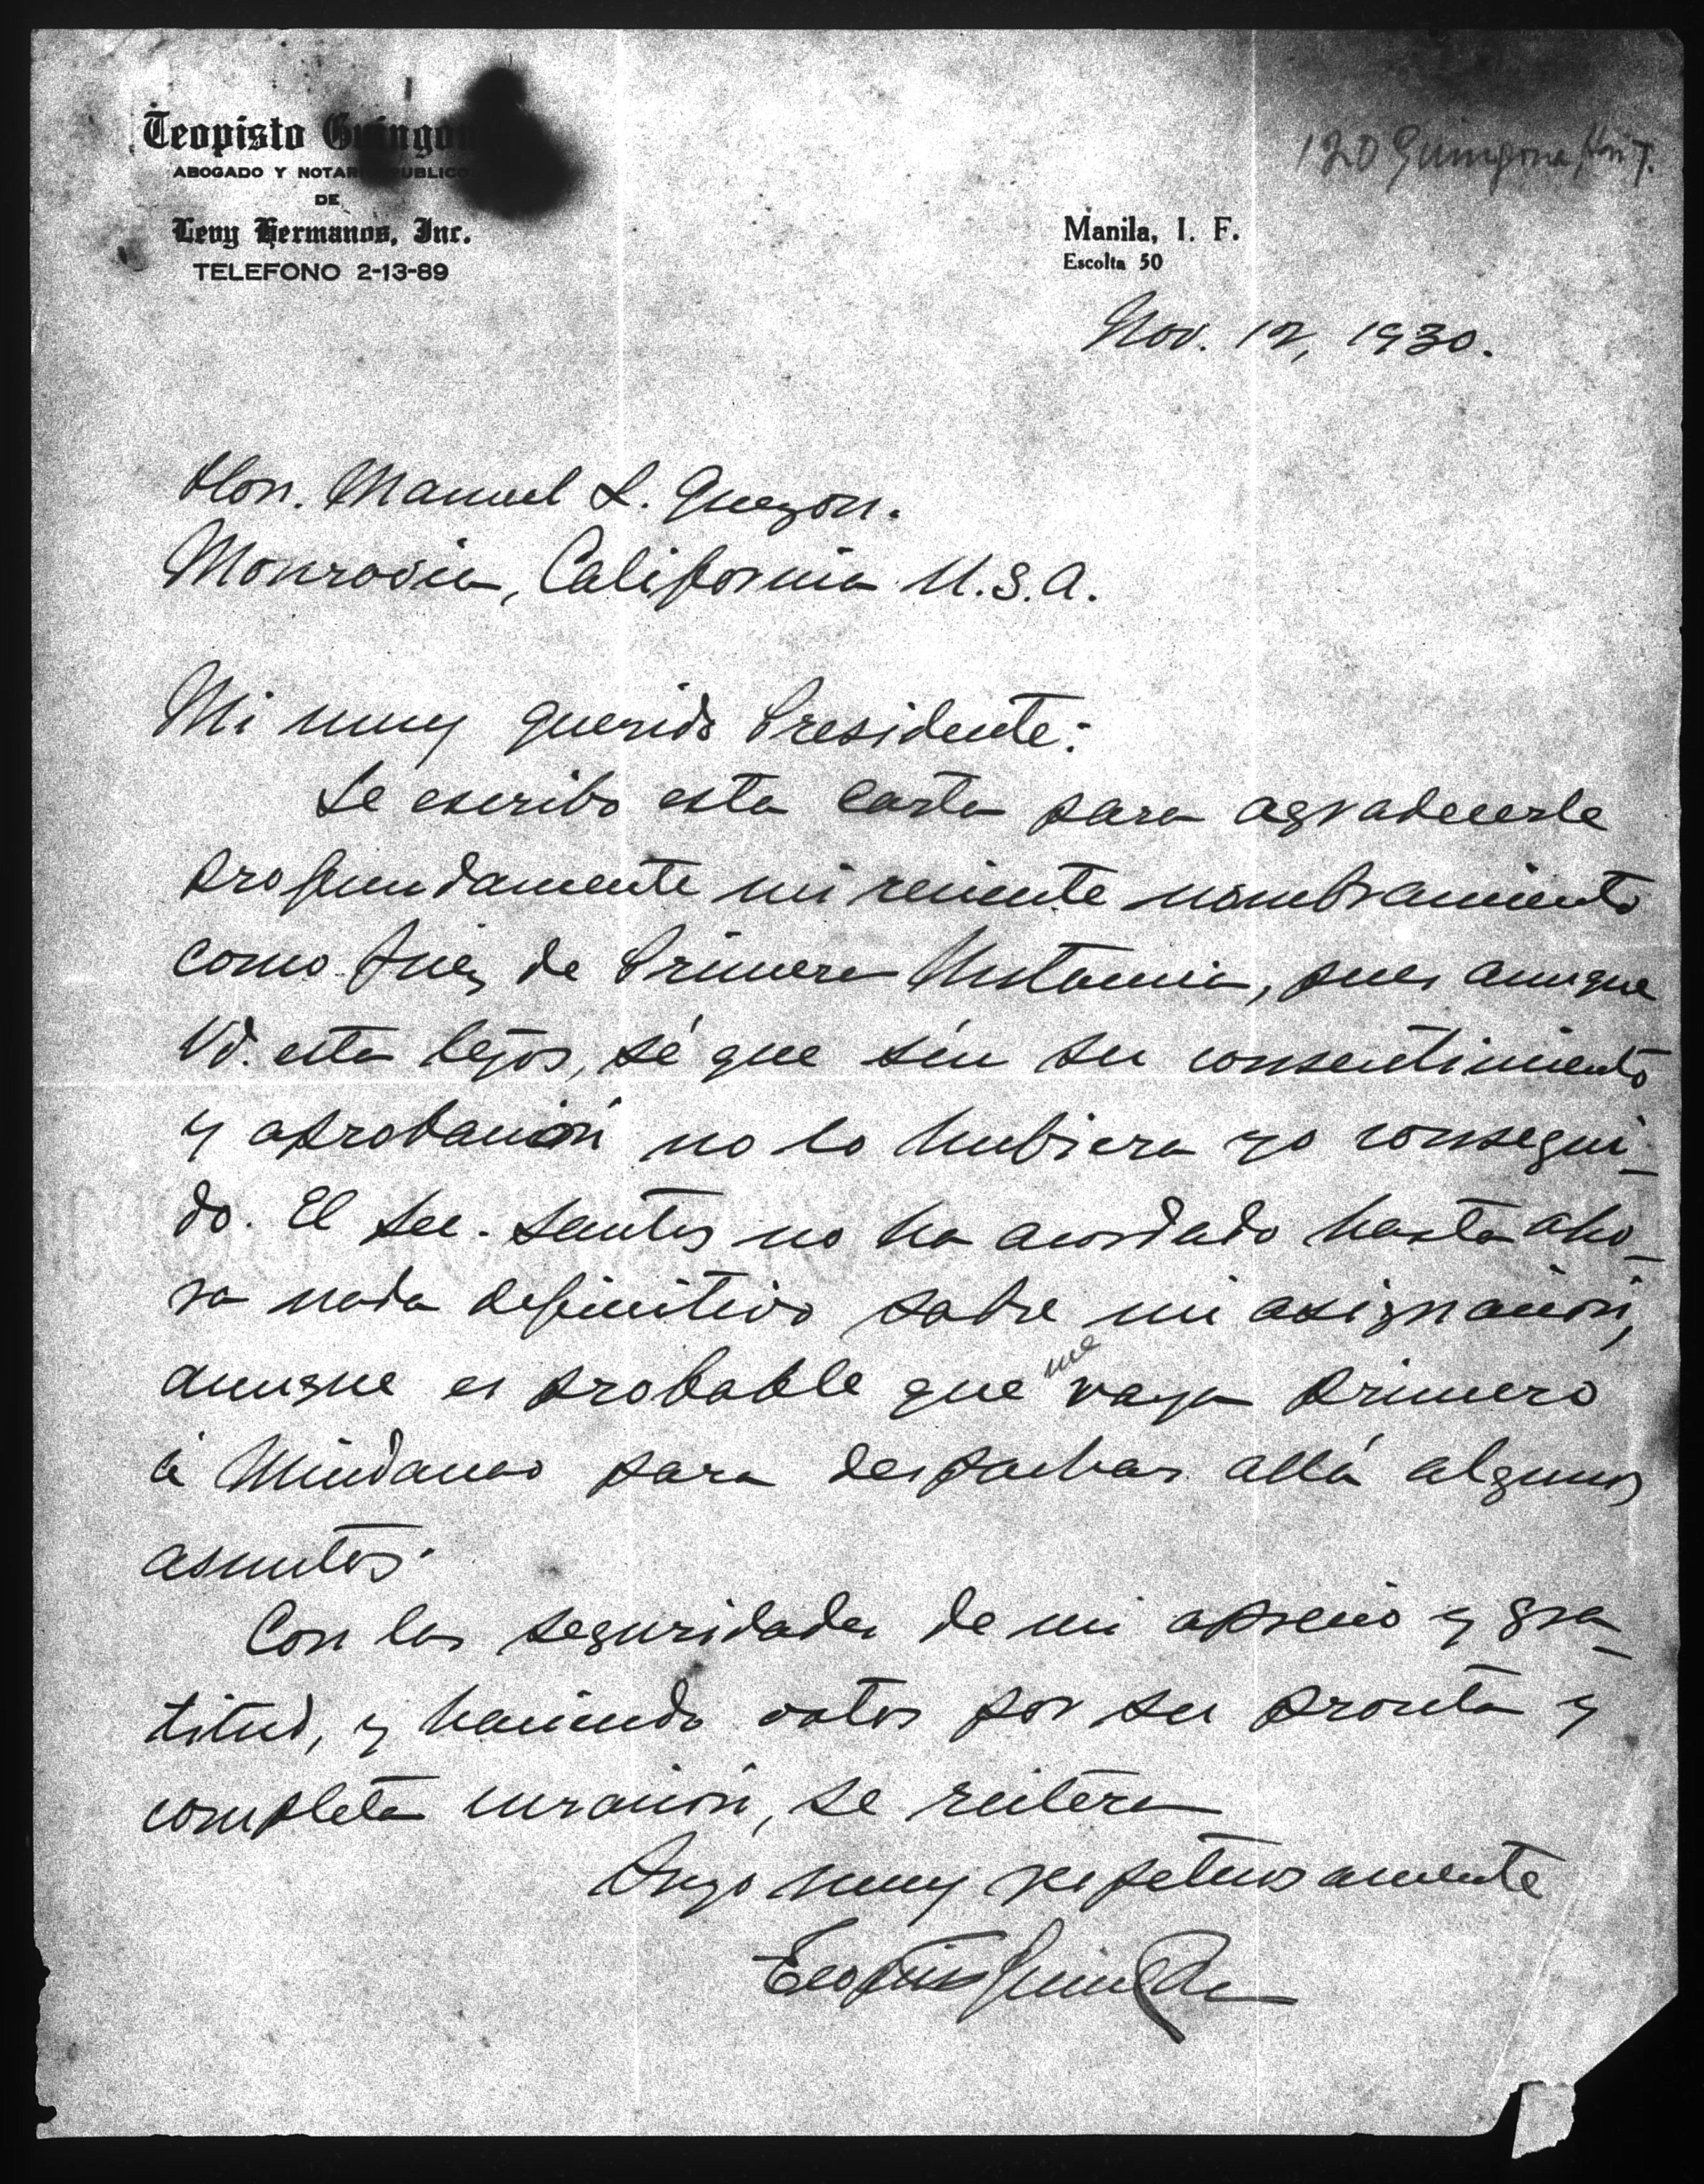 Teopisto Guingon
ABOGADO Y NOTARIO PUBLICO
DE
Levy Hermanos, Inc.
TELEFONO 2-13-89
120 Guingona, Hon T.
Manila, I. F.
Escolta 50
Nov. 12, 1930.
Hon. Manuel L. Quezon.
Monrovia, California U.S.A.
Mi muy querido Presidente:
Le escribo esta carta para agradecerle
profundamente mi reciente nombramiento
como Juez de Primera Instancia, pues aunque
Vd. esta lejos, sé que sin su consentimiento
y aprobación no lo hubiera yo consegui-
do. El Sec. Santos no ha acordado hasta aho-
ra nada definitivo sobre mi asignación,
aunque es probable que me vaya primero
á Mindanao para despachar allá algunos
asuntos.
Con las seguridades de mi aprecio y gra-
titud, y haciendo votos por su pronta y
completa curación, se reitera
Suyo muy respetuosamente
Teopisto Guingona